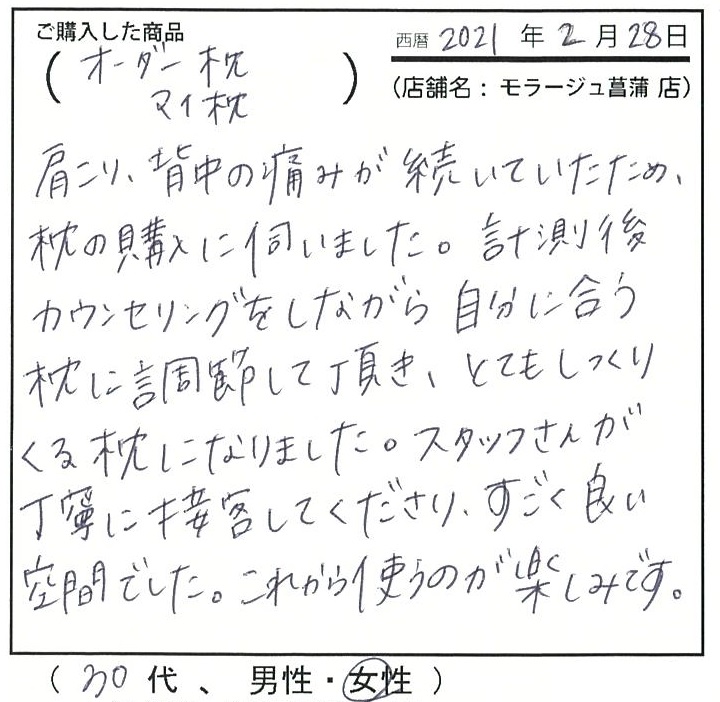 ご購入した商品
(オーダー枕
マイ枕)
西暦 2021 年 2 月 28 日
(店舗名：モラージュ菖蒲 店)
肩こり、背中の痛みが続いていたため、
枕の購入に伺いました。計測後
カウンセリングをしながら自分に合う
枕に調節して頂き、とてもしっくり
くる枕になりました。スタッフさんが
丁寧に接客してくださり、すごく良い
空間でした。これから使うのが楽しみです。
(30代、男性・女性)